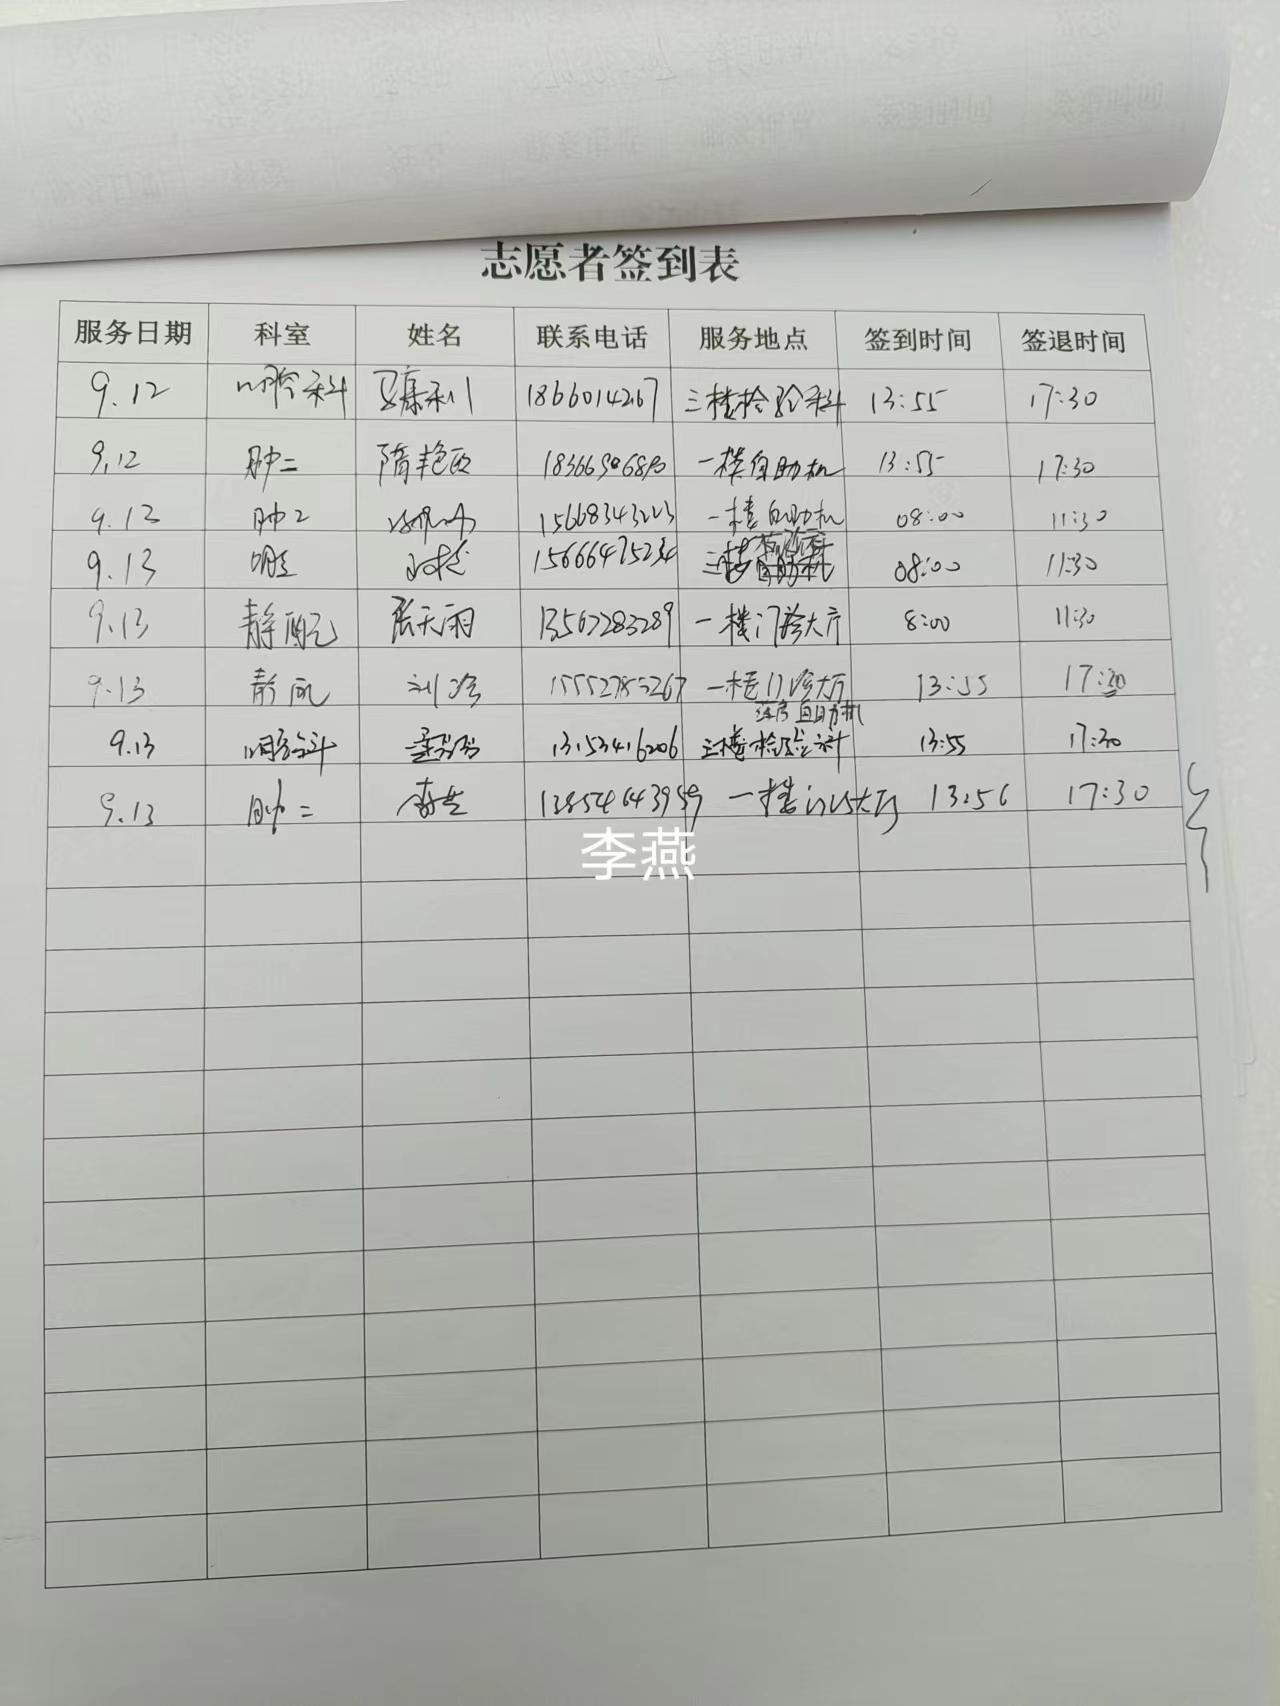 志愿者签到表
服务日期 科室 姓名 联系电话 服务地点 签到时间 签退时间
9.12 科 康利 三楼检验科 13:55 17:30
9.12 肿二 隋艳 一楼自助机 13:55 17:30
9.13 肿2 15668343223 一楼自助机 08:00 11:30
9.13 15666475234 三楼 08:00 11:30
9.13 静配 张天雨 13562283289 一楼门诊大厅 8:00 11:30
9.13 静配 刘 15552785267 一楼门诊大厅 13:55 17:30
自助机
9.13 13153416206 三楼检验科 13:55 17:30
9.13 肿二 李燕 一楼门诊大厅 13:56 17:30
李燕